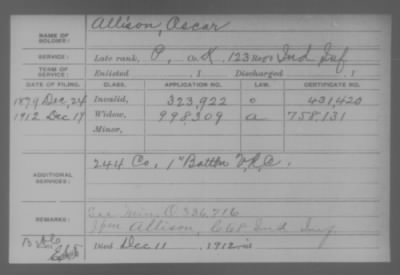 Allison, Oscar
NAME OF SOLDIER:
SERVICE: Late rank, P, Co. K, 123 Reg't Ind Inf
TERM OF SERVICE: Enlisted , 1 Discharged , 1
DATE OF FILING. CLASS. APPLICATION NO. LAW. CERTIFICATE NO.
1879 Dec, 24 Invalid, 323,922 431,420
1912 Dec 19 Widow, 998,309 a 758,131
Minor,
ADDITIONAL SERVICES: 244 Co. 1" Battn V.R.C.
REMARKS: See Min. O 336,716
Allison, C 68 Ind Inf
Died Dec 11 , 1912